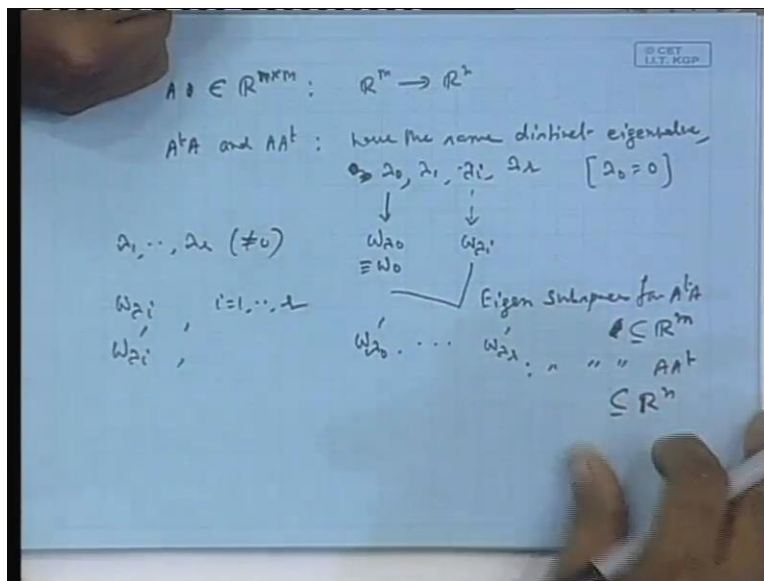 © CET
I.I.T. KGP
A ∈ ℝⁿˣᵐ : ℝᵐ → ℝⁿ
AᵗA and AAᵗ : have the same distinct eigenvalue,
λ₀, λ₁, ·λi, λr [λ₀ = 0]
λ₁, ··, λr (≠0) W_λ₀ W_λi
≡ W₀
W_λi , i=1, ··, r Eigen subspaces for AᵗA
⊆ ℝᵐ
W'_λi , W'_λ₀ . ··· W'_λr : " " " AAᵗ
⊆ ℝⁿ